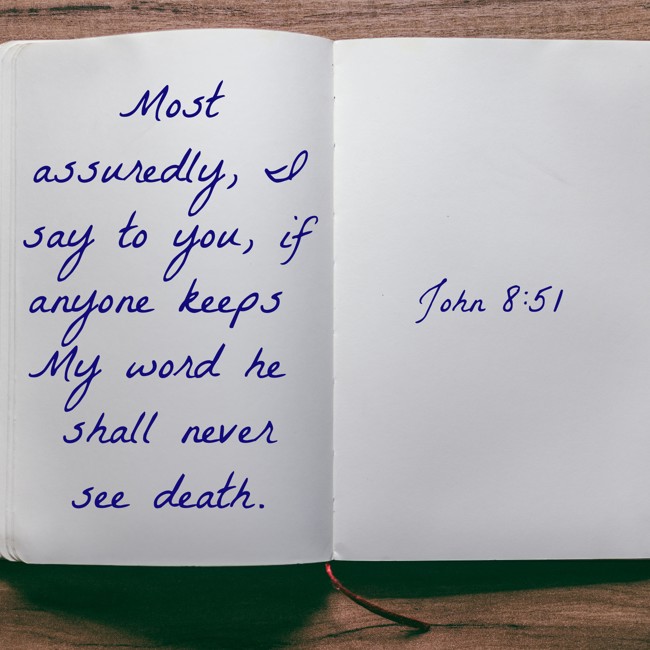 Most
assuredly, I
say to you, if
anyone keeps
My word he
shall never
see death.
John 8:51